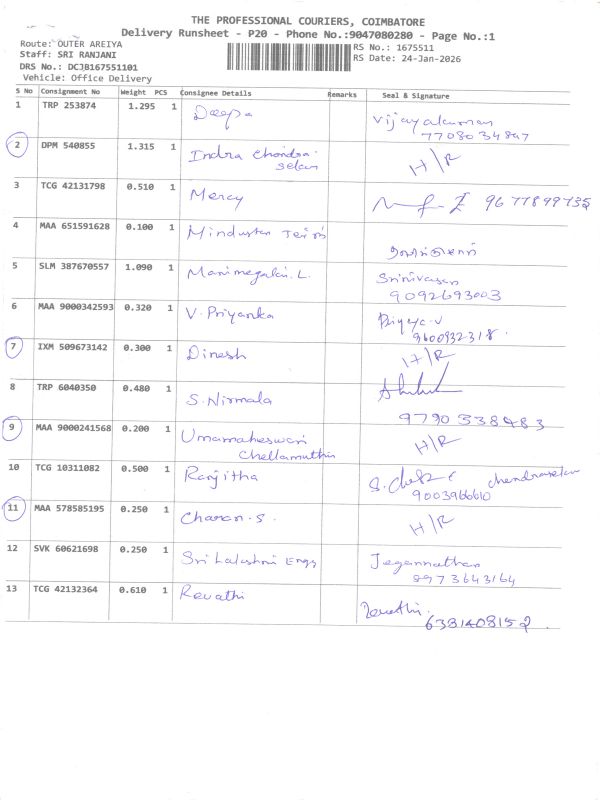 THE PROFESSIONAL COURIERS, COIMBATORE
Delivery Runsheet - P20 - Phone No.:9047080280 - Page No.:1
Route: OUTER AREIYA
Staff: SRI RANJANI
RS No.: 1675511
DRS No.: DCJB167551101
RS Date: 24-Jan-2026
Vehicle: Office Delivery
S No Consignment No Weight PCS Consignee Details Remarks Seal & Signature
1 TRP 253874 1.295 1 Deepa Vijayakumar
7708034897
2 DPM 540855 1.315 1 Indra Chandra- H/R
selan
3 TCG 42131798 0.510 1 Mercy 9677899735
4 MAA 651591628 0.100 1 Hindustan
5 SLM 387670557 1.090 1 Manimegalai.L. Srinivasan
9092693003
6 MAA 9000342593 0.320 1 V.Priyanka Priya-V
9600932318.
7 IXM 509673142 0.300 1 Dinesh H/R
8 TRP 6040350 0.480 1 S.Nirmala
9790338483
9 MAA 9000241568 0.200 1 Umamaheswari H/R
Chellamuthu
10 TCG 10311082 0.500 1 Ranjitha chandrasekar
9003966610
11 MAA 578585195 0.250 1 Charan.S. H/R
12 SVK 60621698 0.250 1 Sri Lakshmi Engg Jegannathan
8973643164
13 TCG 42132364 0.610 1 Revathi Revathi.
6381408152.